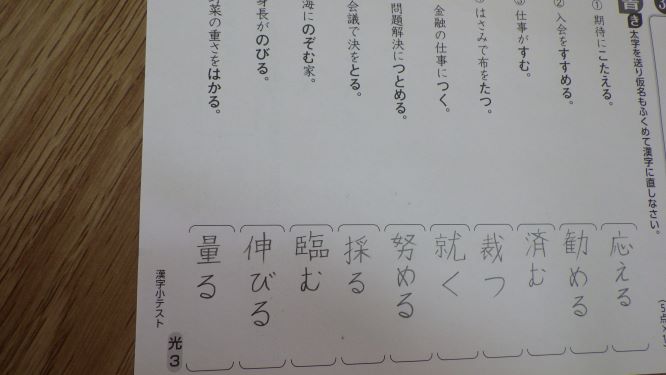 書き 太字を送り仮名もふくめて漢字に直しなさい。
① 期待にこたえる。
② 入会をすすめる。
③ 仕事がすむ。
はさみで布をたつ。
金融の仕事につく。
問題解決につとめる。
会議で決をとる。
海にのぞむ家。
身長がのびる。
野菜の重さをはかる。
応える
勧める
済む
裁つ
就く
努める
採る
臨む
伸びる
量る
漢字小テスト
光3